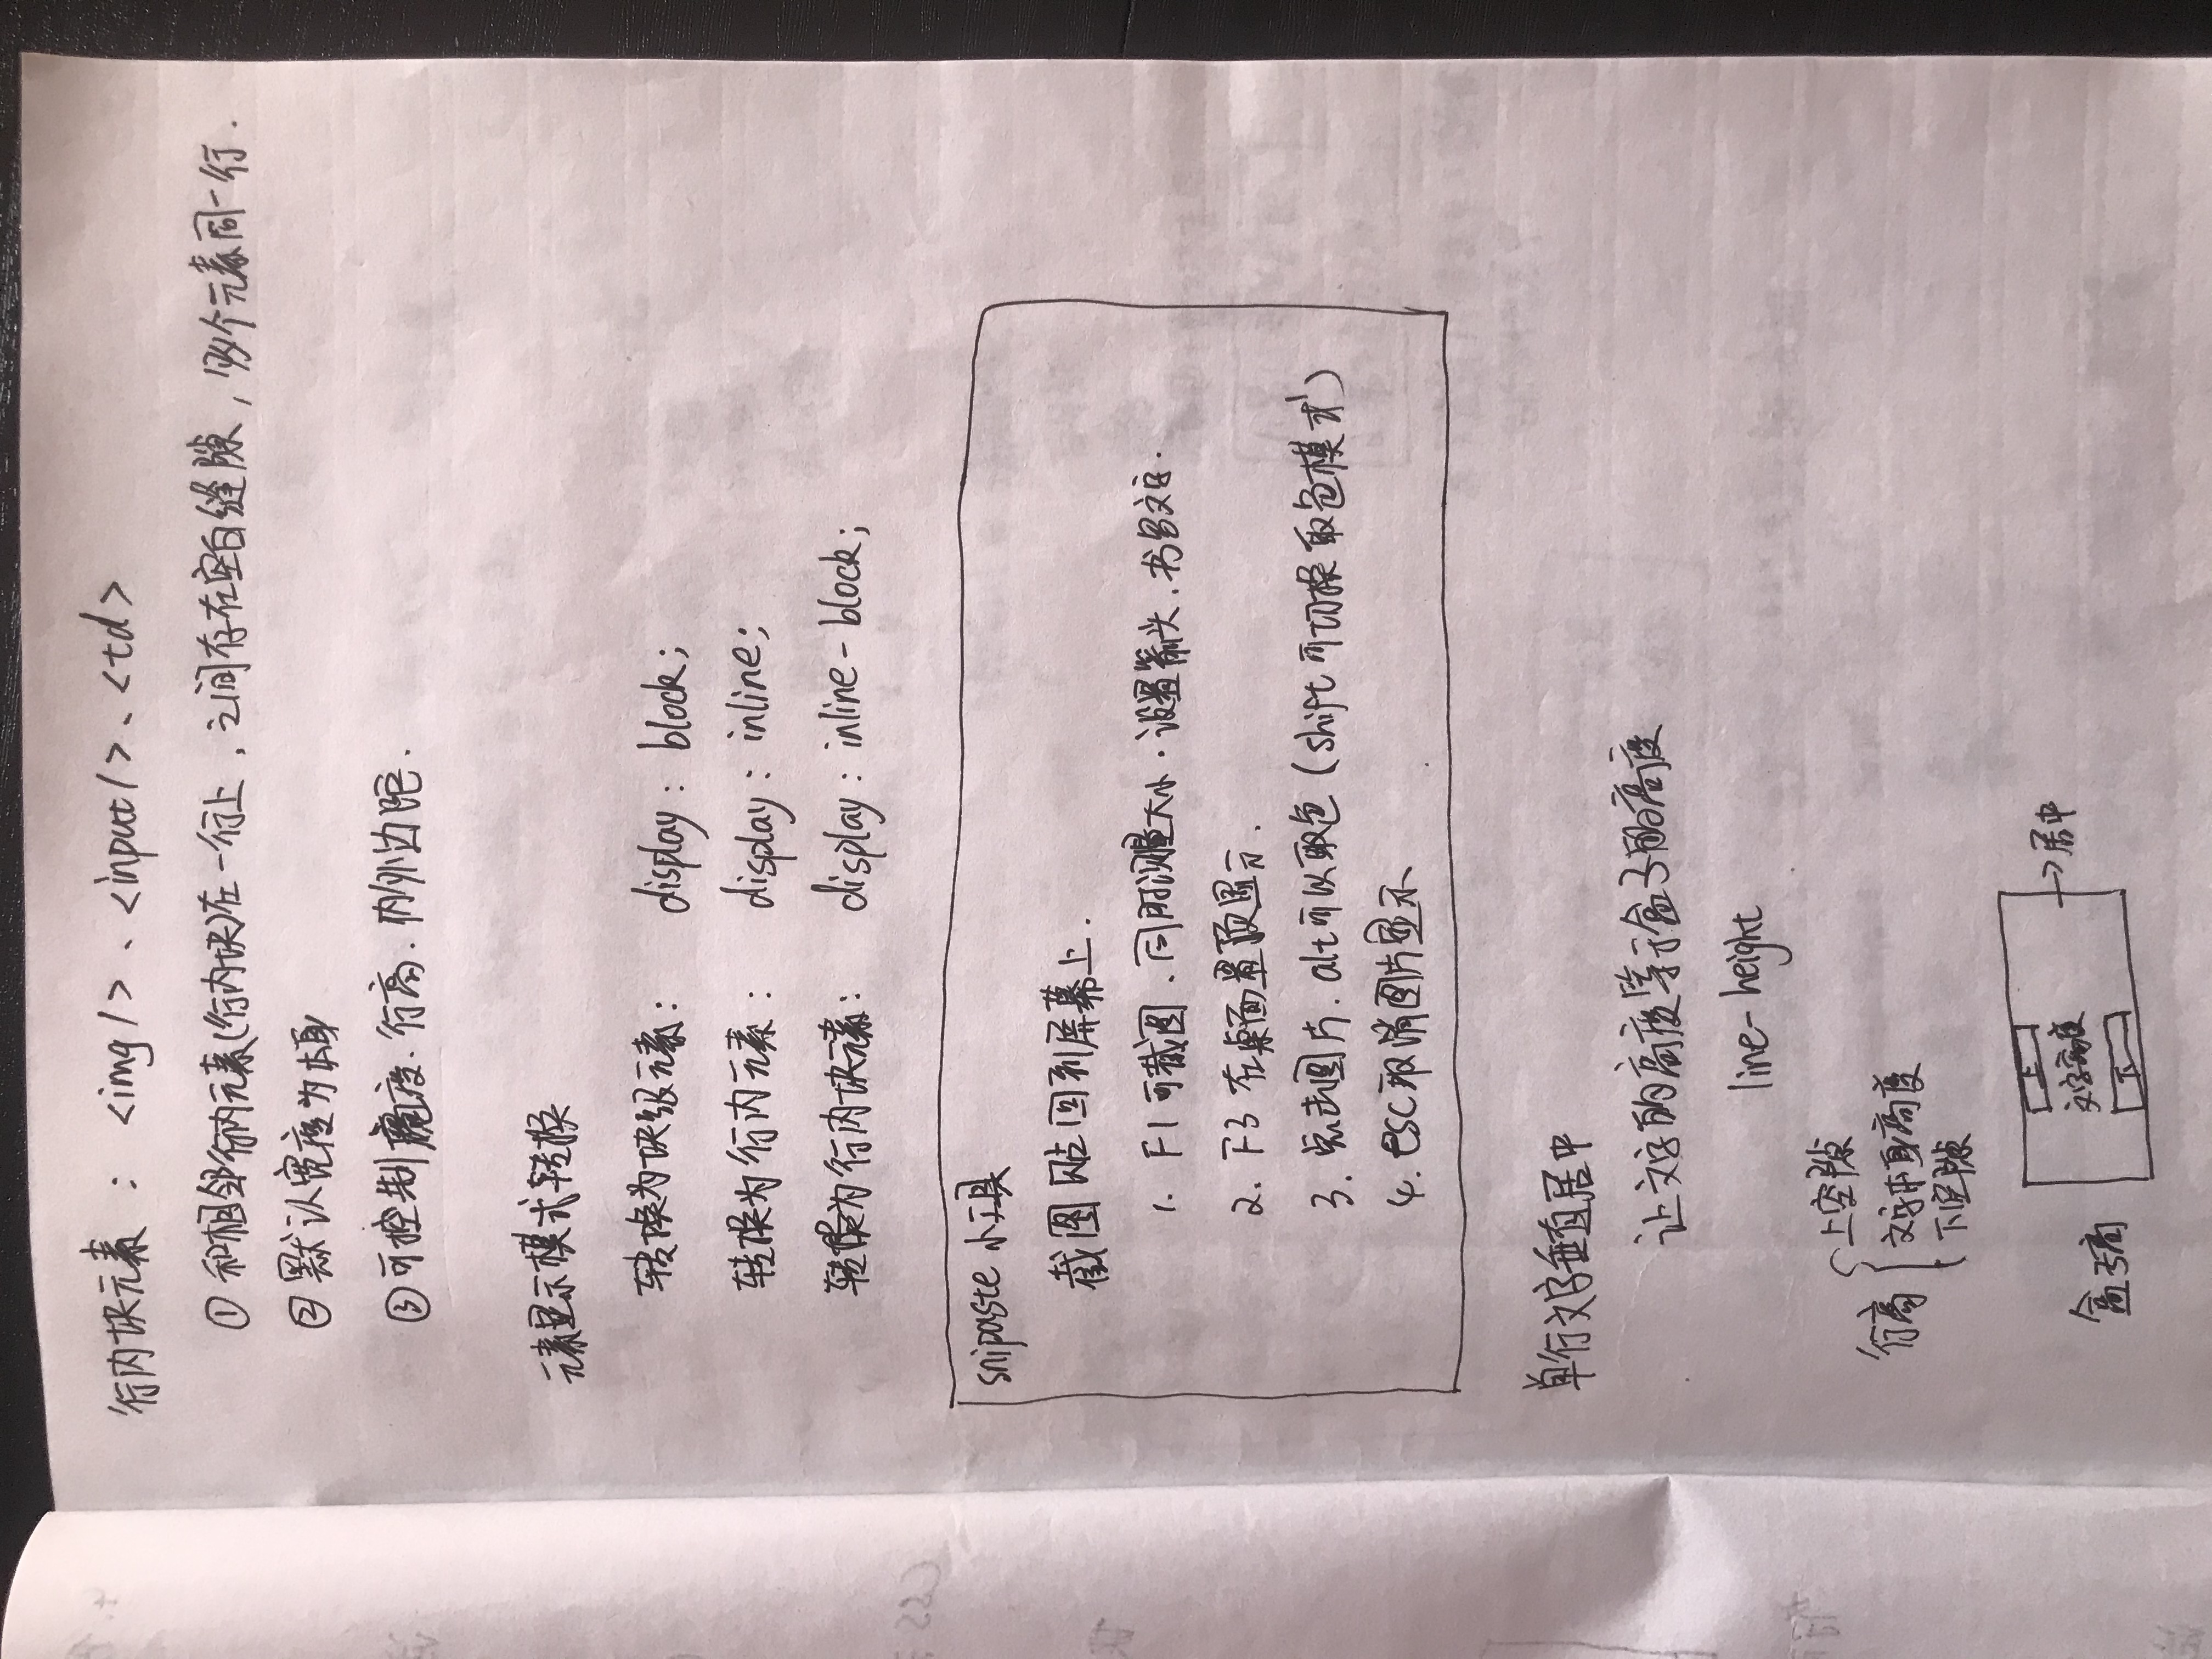 行内块元素 : <img/>、<input/>、<td>
① 和相邻行内元素(行内块)在一行上,之间存在空白缝隙,多个元素同一行.
② 默认宽度为本身
③ 可控制 度、行高、内外边距.
元素显示模式转换
转换为块级元素: display: block;
转换为行内元素: display: inline;
转换为行内块元素: display: inline-block;
snipaste 小工具
截图贴回到屏幕上.
1. F1 可截图、同时测量大小、设置箭头、书写文字.
2. F3 在桌面置顶显示.
3. 点击图片、alt可以取色(shift可切换取色模式)
4. esc取消图片显示
单行文字垂直居中
让文字的高度等于盒子的高度
line-height
上空隙
行高 文字本身高度
下空隙
上
文字高度 →居中
盒子高
下